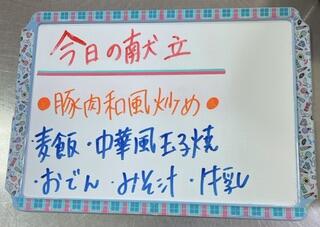 今日の献立
●豚肉和風炒め●
麦飯・中華風玉子焼
・おでん・みそ汁・牛乳